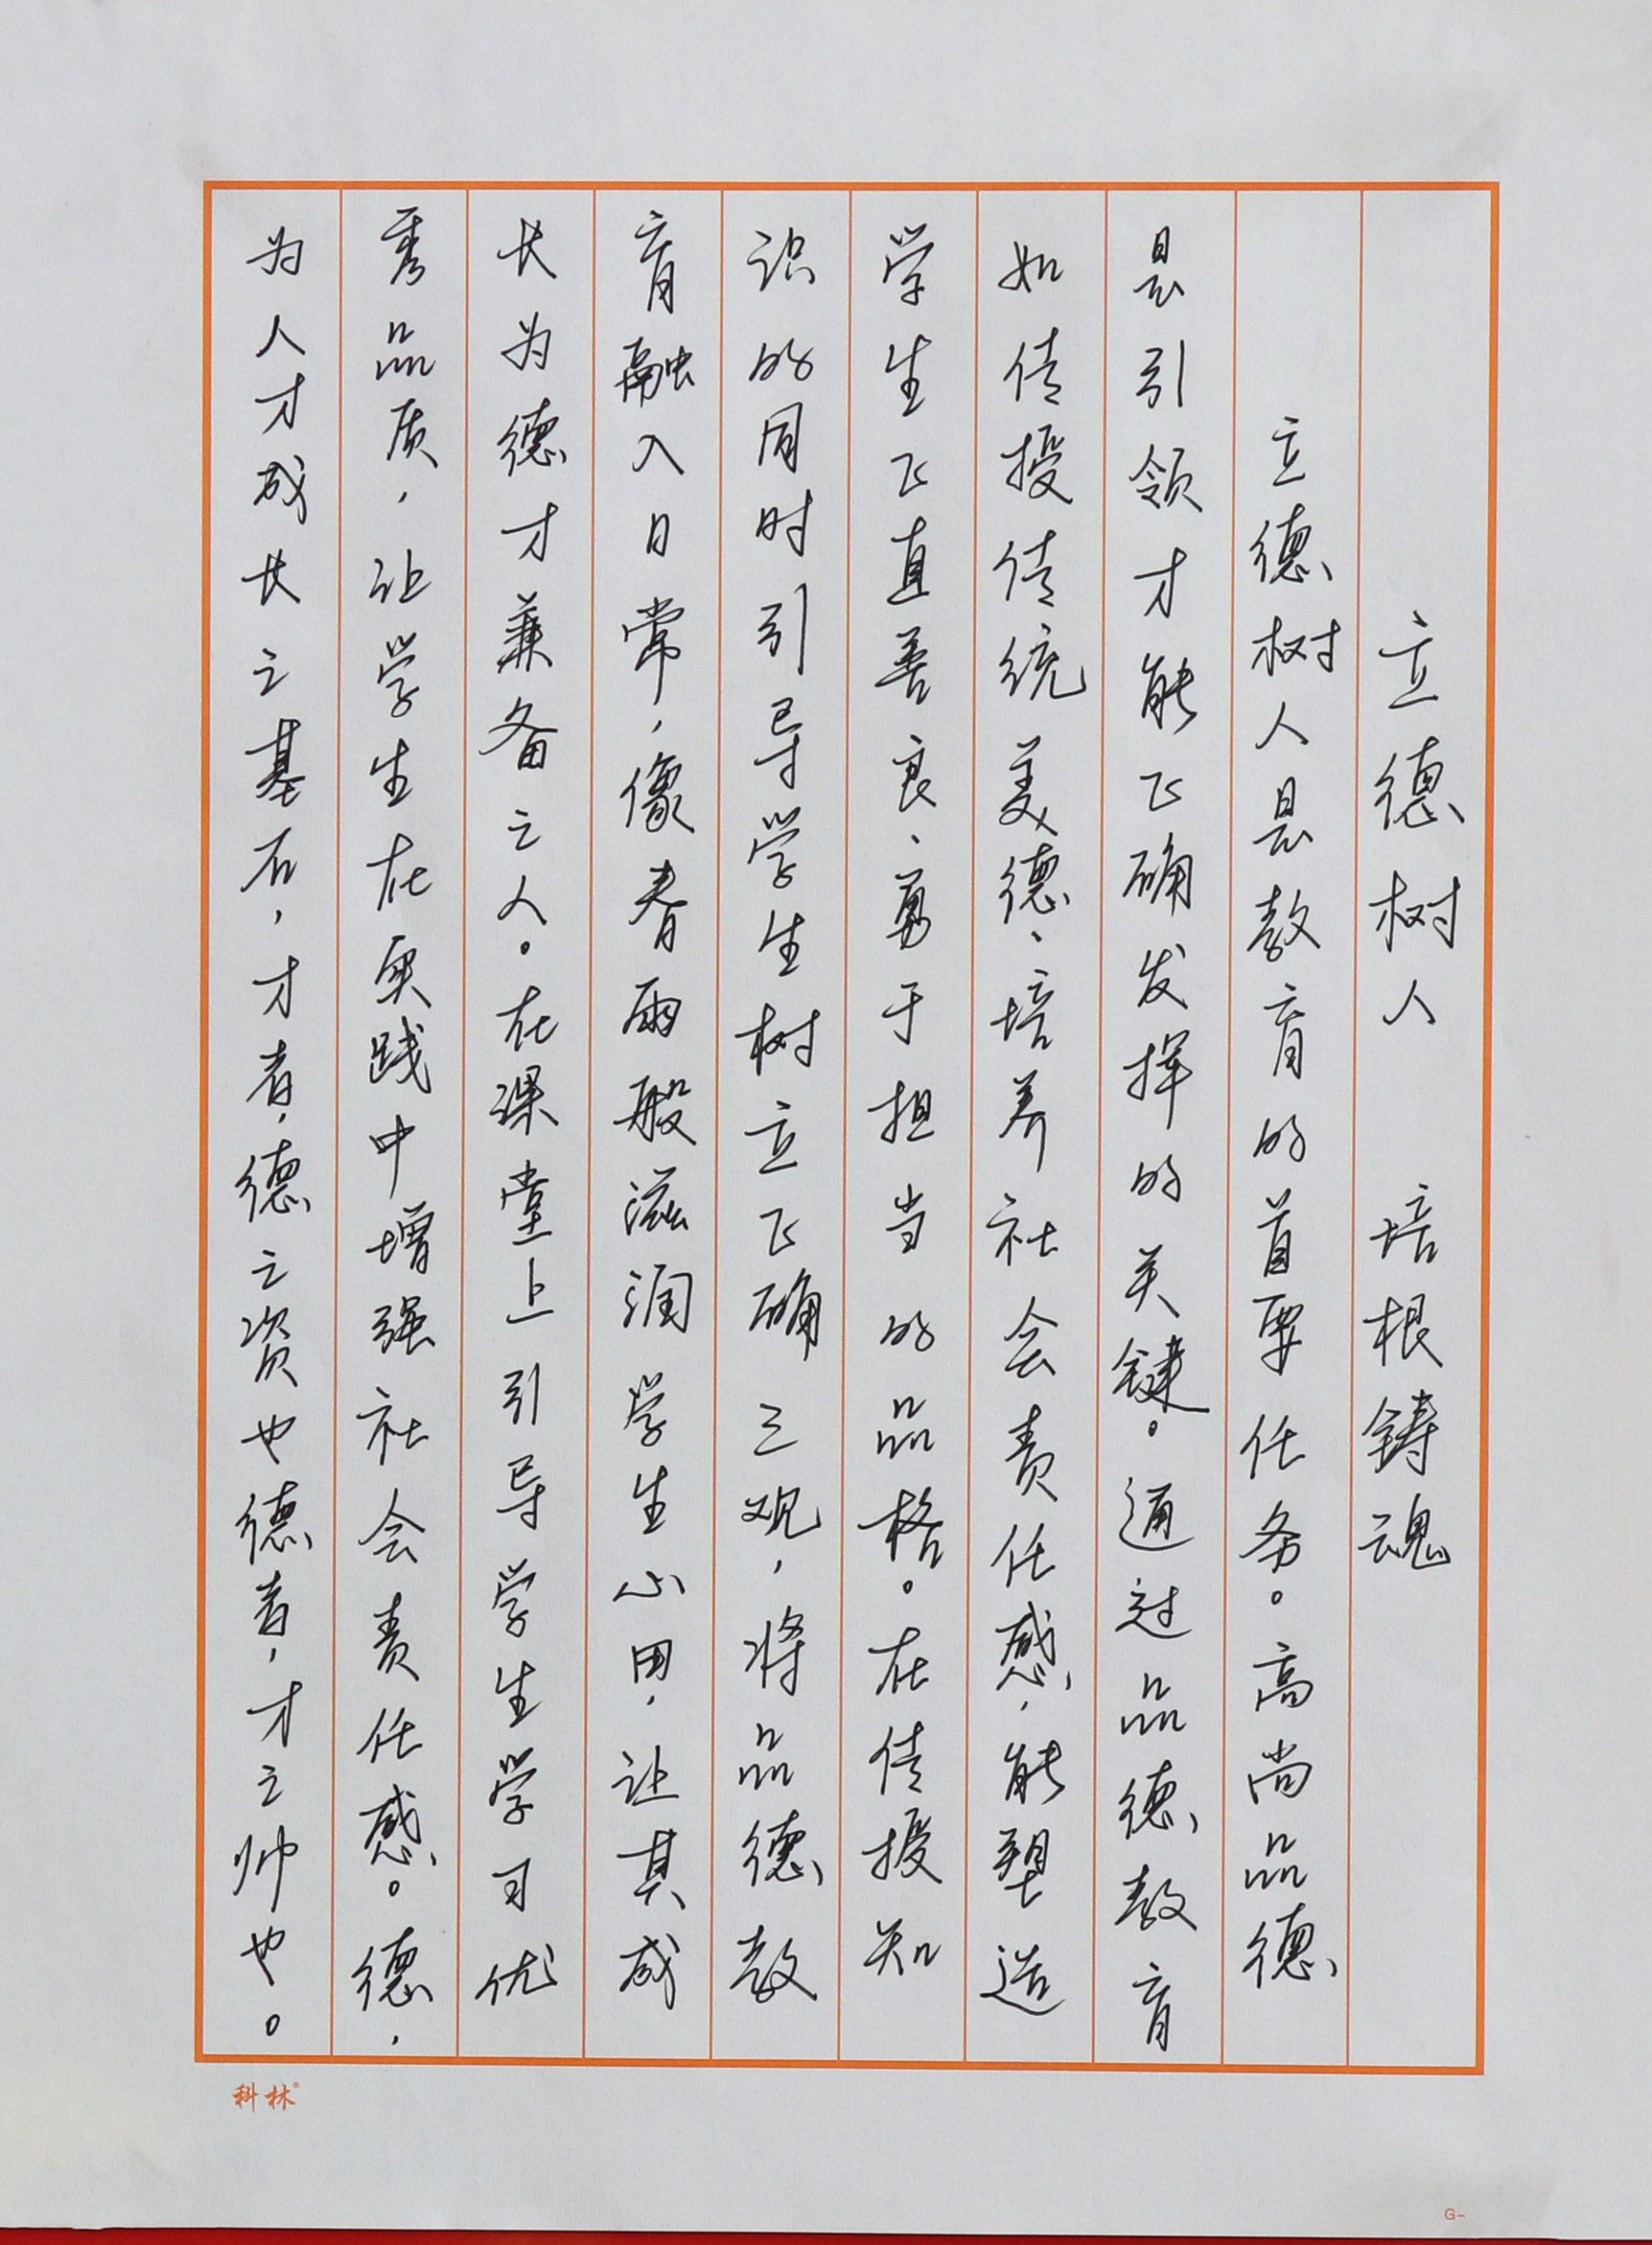 立德树人 培根铸魂
立德树人是教育的首要任务。高尚品德
是引领才能正确发挥的关键。通过品德教育
如传授传统美德、培养社会责任感，能塑造
学生正直善良、勇于担当的品格。在传授知
识的同时引导学生树立正确三观，将品德教
育融入日常，像春雨般滋润学生心田，让其成
长为德才兼备之人。在课堂上引导学生学习优
秀品质，让学生在实践中增强社会责任感。德，
为人才成长之基石，才者，德之资也德者，才之帅也。
科林®
G-